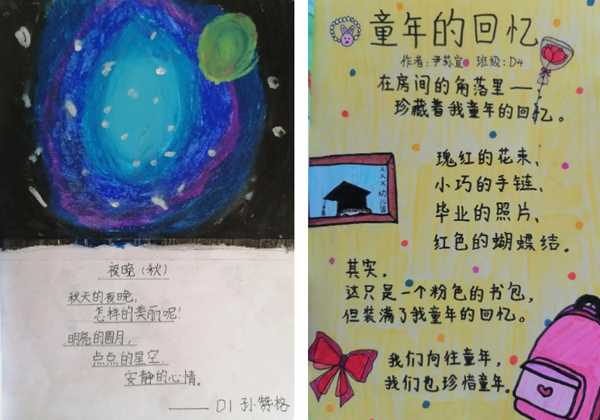 夜晚（秋）
秋天的夜晚，
怎样的美丽呢！
明亮的圆月，
点点的星空，
安静的心情。
—— D1 孙赞格
童年的回忆
作者：尹荪宜 班级：D4
在房间的角落里——
珍藏着我童年的回忆。
瑰红的花束、
小巧的手链、
毕业的照片、
红色的蝴蝶结。
其实，
这只是一个粉色的书包，
但装满了我童年的回忆。
我们向往童年，
我们也珍惜童年。